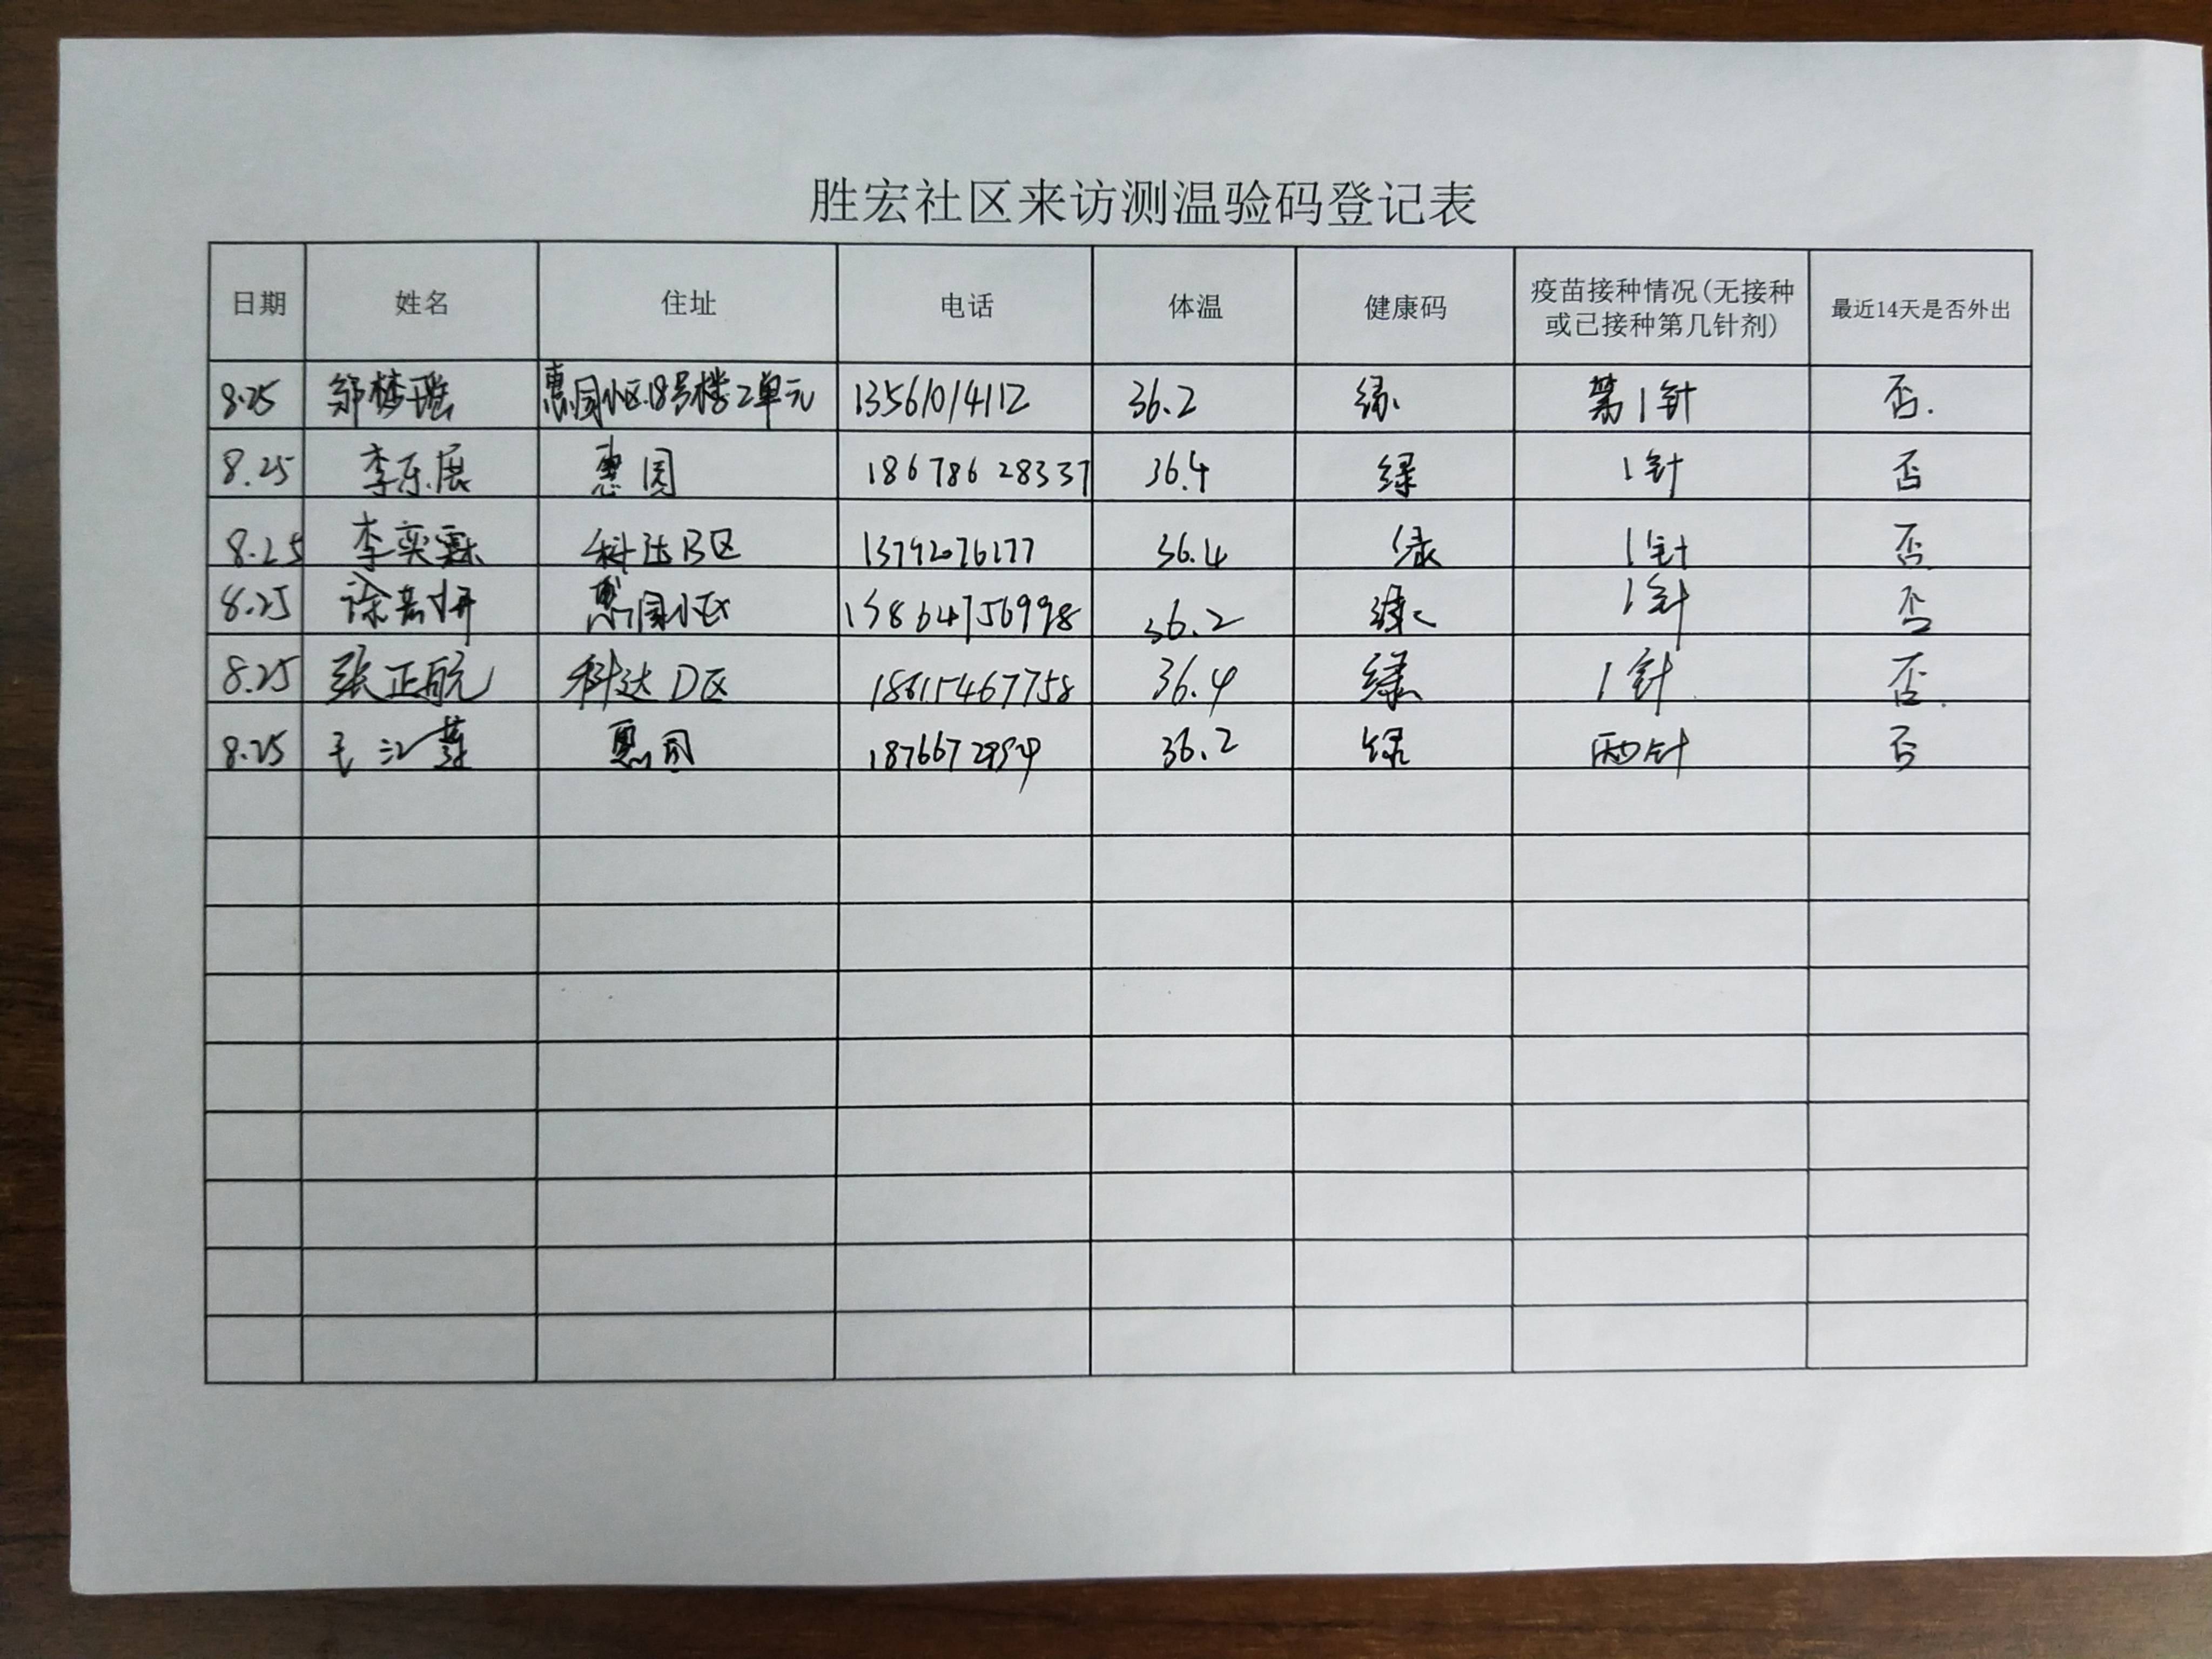 胜宏社区来访测温验码登记表
日期 姓名 住址 电话 体温 健康码 疫苗接种情况(无接种或已接种第几针剂) 最近14天是否外出
8.25 邹梦瑶 惠园小区18号楼2单元 13561014112 36.2 绿 第1针 否.
8.25 李东展 惠园 18678628337 36.4 绿 1针 否
8.25 李奕霖 科达B区 13792076177 36.4 绿 1针 否
8.25 徐 妍 惠园小区 13864756998 36.2 绿 1针 否
8.25 张正航 科达D区 18615467758 36.4 绿 1针 否.
8.25 毛江燕 惠园 36.2 绿 两针 否